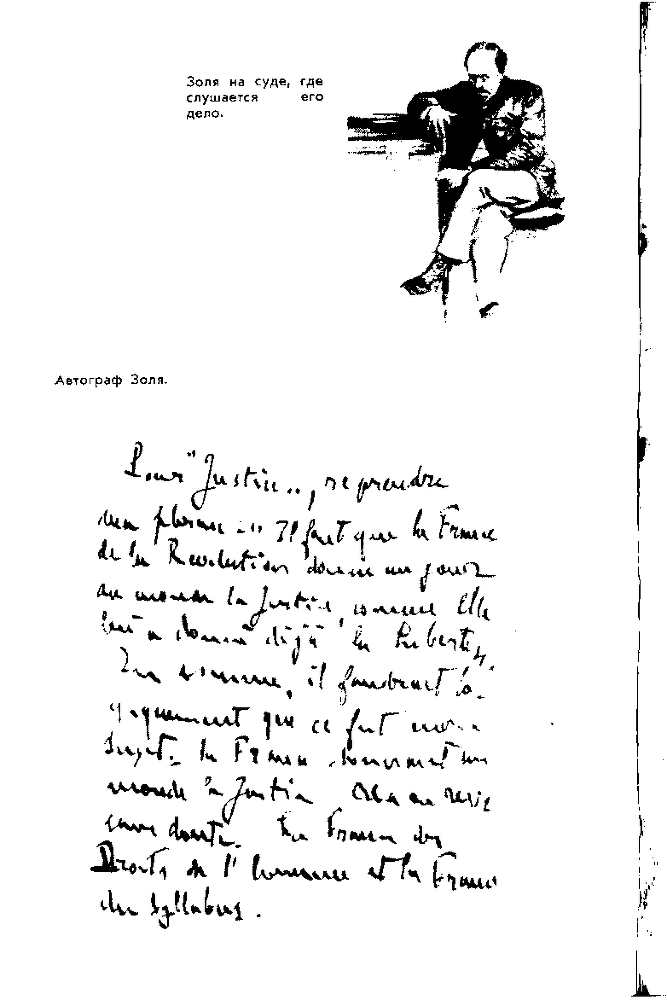 Золя на суде, где
слушается его
дело.
Автограф Золя.
Pour "Justice", reprendre
ma phrase : "Il faut que la France
de la Revolution donne un jour
au monde la Justice, comme Elle
lui a donné déjà la Liberté".
En somme, il faudrait lo-
giquement que ce fut mon
sujet. la France donnant au
monde la Justice
sans doute. La France des
Droits de l'homme et la France
du Syllabus.